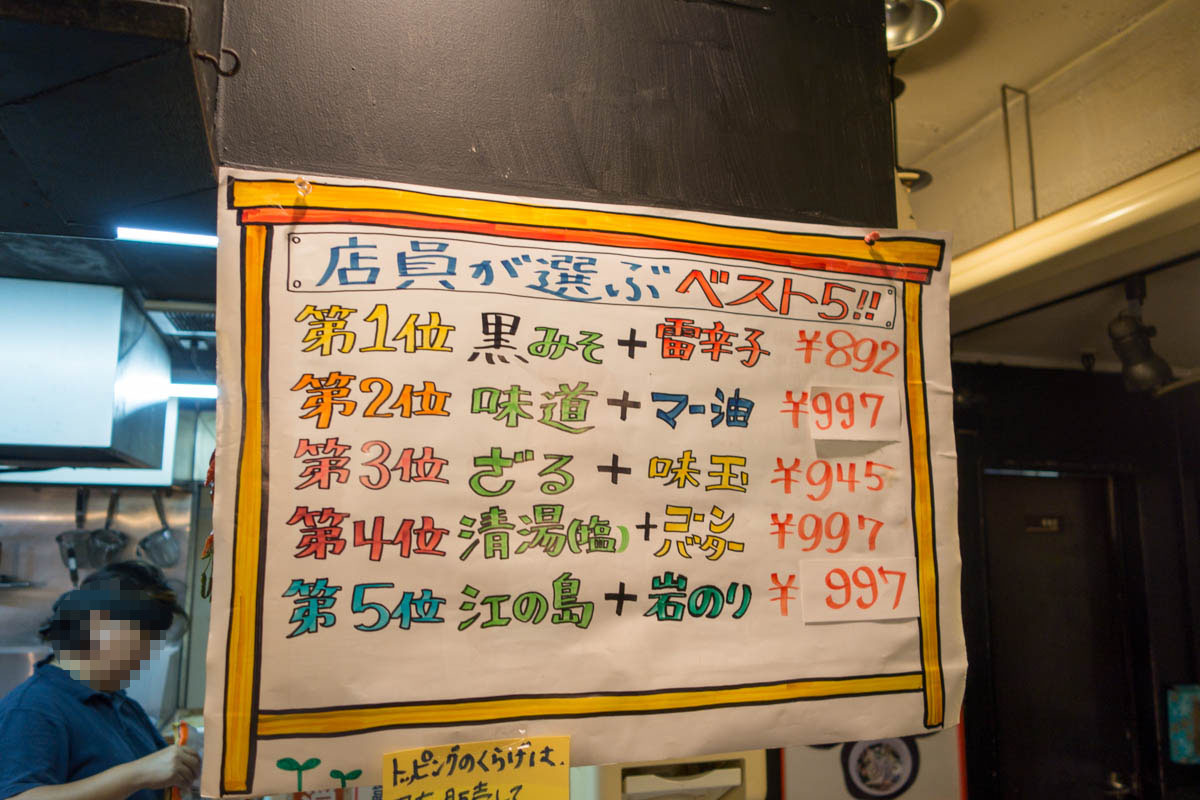 店員が選ぶ ベスト5!!
第1位 黒みそ+雷辛子 ¥892
第2位 味道+マー油 ¥997
第3位 ざる+味玉 ¥945
第4位 清湯(塩)+コーンバター ¥997
第5位 江の島+岩のり ¥997
トッピングのくらげは、